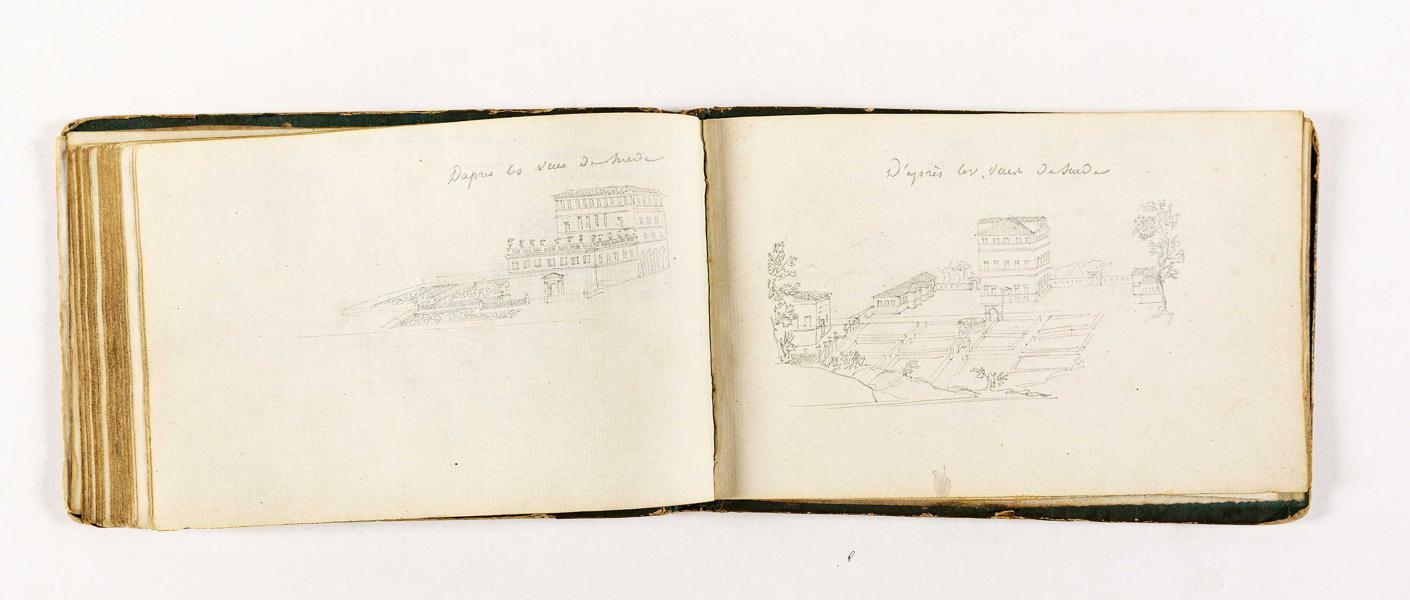 Dapres les vues de Suede
D'après les vues de Suede